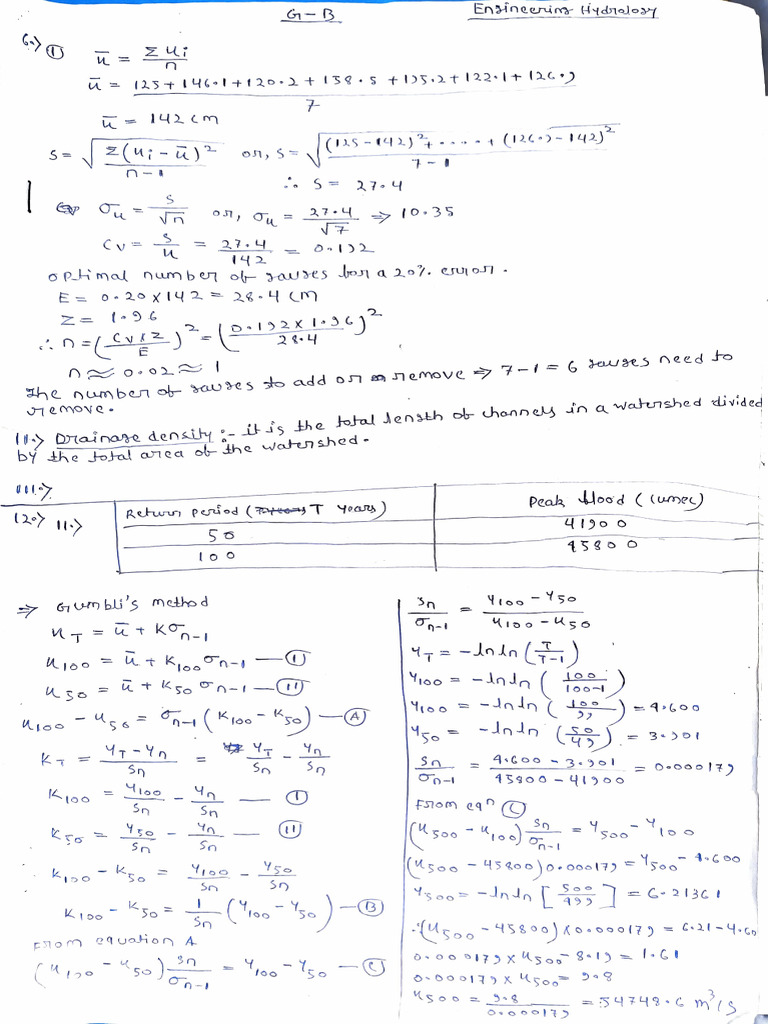 G-B
Engineering Hydrology
6.> ① x̄ = Σxi/n
x̄ = (125+146.1+120.2+158.5+195.2+122.1+126.9)/7
x̄ = 142 cm
s = √(Σ(xi - x̄)²/(n-1)) or, s = √(((125-142)²+.....+(126.9-142)²)/(7-1))
∴ s = 27.4
σx = s/√n or, σx = 27.4/√7 ⇒ 10.35
Cv = s/x̄ = 27.4/142 = 0.192
optimal number of gauges for a 20% error.
E = 0.20×142 = 28.4 cm
Z = 1.96
∴ n = (Cv×Z/E)² = (0.192×1.96/28.4)²
n ≈ 0.02 ≈ 1
The number of gauges to add or remove ⇒ 7-1 = 6 gauges need to
remove.
11.> Drainage density :- it is the total length of channels in a watershed divided
by the total area of the watershed.
111.>
120.> 11.>
Return period (T years) Peak flood (cumec)
50 41900
100 45800
⇒ Gumbli's method
xT = x̄ + Kσn-1
x100 = x̄ + K100 σn-1 — ①
x50 = x̄ + K50 σn-1 — ⑪
x100 - x50 = σn-1 (K100 - K50) — Ⓐ
KT = (yT - yn)/Sn = yT/Sn - yn/Sn
K100 = y100/Sn - yn/Sn — ①
K50 = y50/Sn - yn/Sn — ⑪
K100 - K50 = y100/Sn - y50/Sn
K100 - K50 = 1/Sn (y100 - y50) — Ⓑ
From equation A
(x100 - x50) Sn/σn-1 = y100 - y50 — Ⓒ
Sn/σn-1 = (y100 - y50)/(x100 - x50)
yT = -ln ln (T/(T-1))
y100 = -ln ln (100/(100-1))
y100 = -ln ln (100/99) = 4.600
y50 = -ln ln (50/49) = 3.901
Sn/σn-1 = (4.600 - 3.901)/(45800 - 41900) = 0.000179
From eqn Ⓒ
(x500 - x100) Sn/σn-1 = y500 - y100
(x500 - 45800) 0.000179 = y500 - 4.600
y500 = -ln ln [500/499] = 6.21361
∴ (x500 - 45800) × 0.000179 = 6.21 - 4.60
0.000179 × x500 - 8.19 = 1.61
0.000179 × x500 = 9.8
x500 = 9.8/0.000179 = 54748.6 m³/s